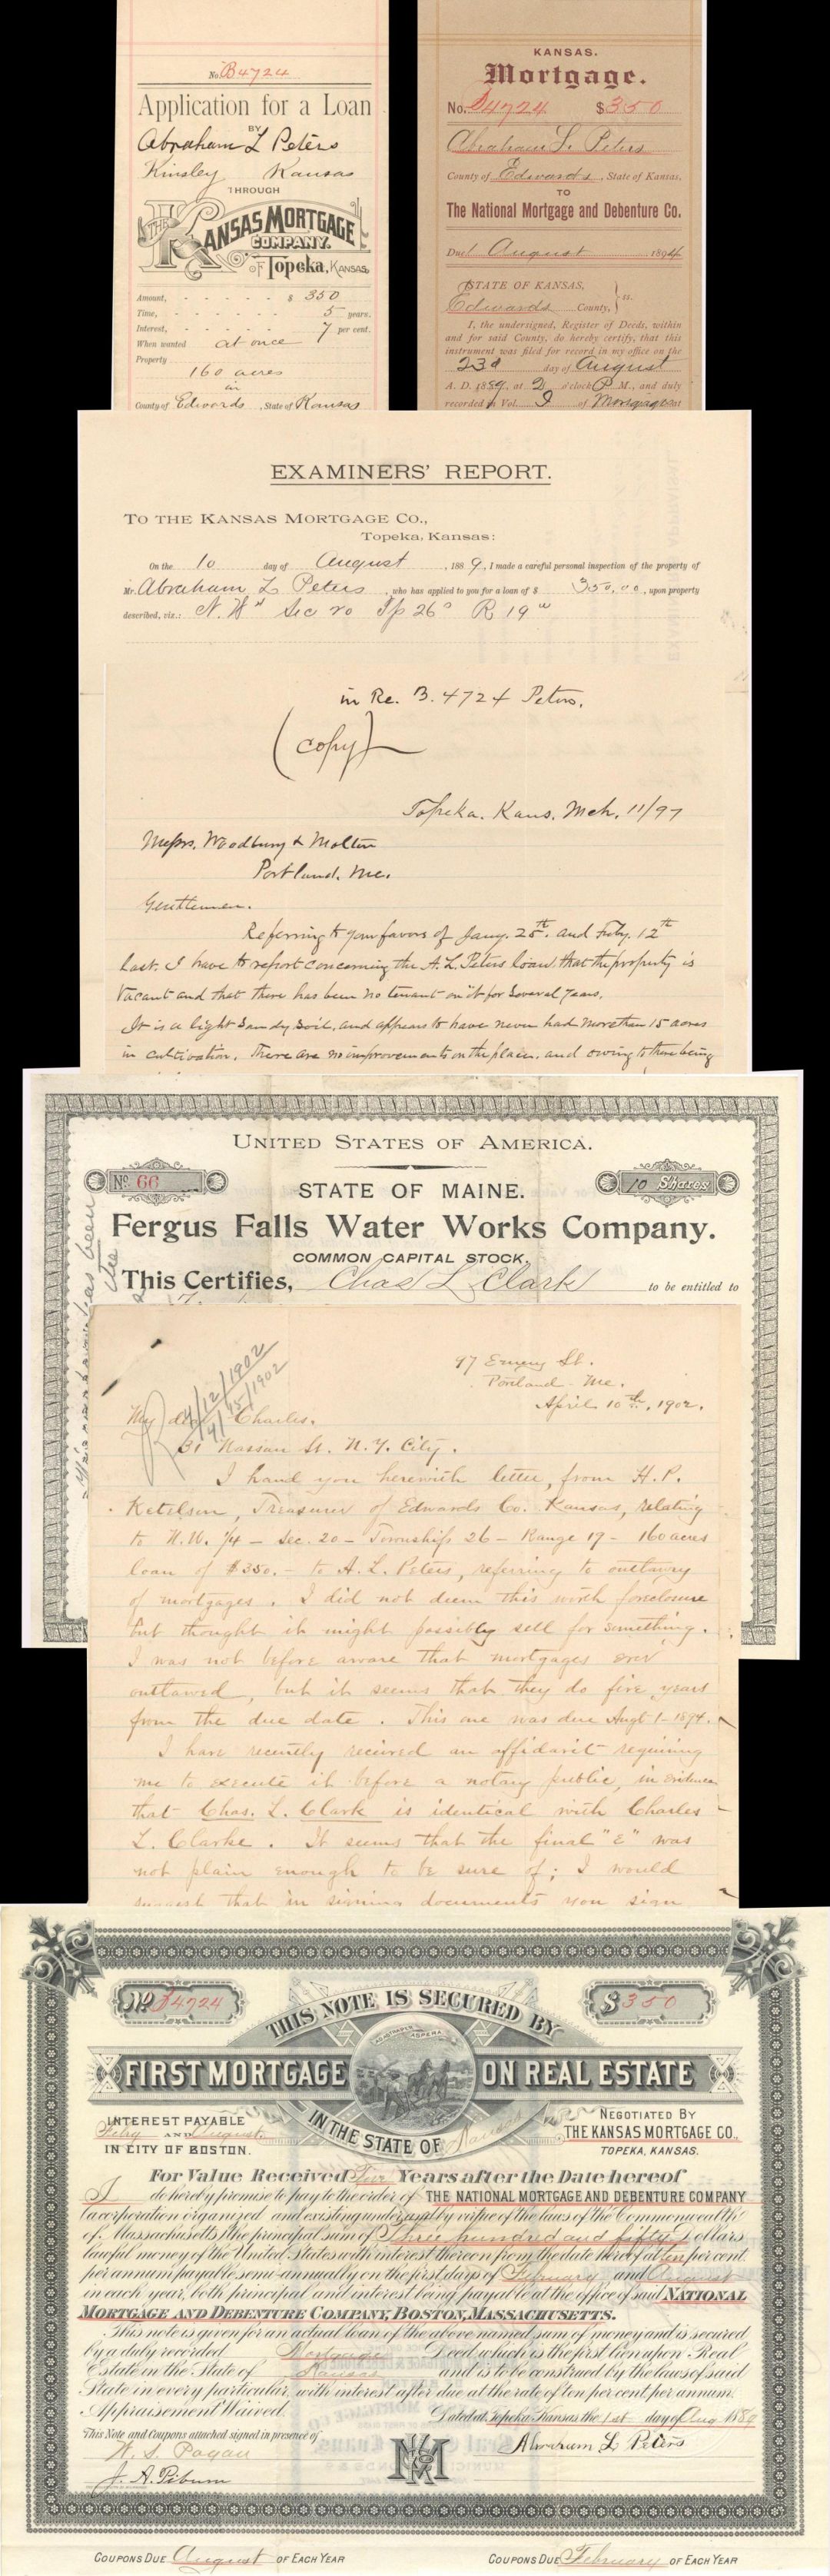 No. B4724
Application for a Loan
BY
Abraham L Peters
Kinsley Kansas
THROUGH
THE KANSAS MORTGAGE
COMPANY.
OF Topeka, KANSAS.
Amount, $ 350
Time, 5 years.
Interest, 7 per cent.
When wanted at once
Property
160 acres
in
County of Edwards, State of Kansas
KANSAS.
Mortgage.
No. B4724 $350
Abraham L. Peters
County of Edwards, State of Kansas,
TO
The National Mortgage and Debenture Co.
Due August 1894
STATE OF KANSAS,
Edwards County, } ss.
I, the undersigned, Register of Deeds, within
and for said County, do hereby certify, that this
instrument was filed for record in my office on the
23d day of August
A. D. 1889, at 2 o'clock P. M., and duly
recorded in Vol. 9 of Mortgages at
EXAMINERS' REPORT.
TO THE KANSAS MORTGAGE CO.,
Topeka, Kansas:
On the 10 day of August, 1889, I made a careful personal inspection of the property of
Mr. Abraham L Peters, who has applied to you for a loan of $ 350.00, upon property
described, viz.: N. W Sec 20 Tp 26 R 19 w
in Re. B. 4724 Peters.
(copy)
Topeka. Kans. Mch. 11/97
Messrs. Woodbury & Moulton
Portland. Me.
Gentlemen.
Referring to your favors of Jany. 25th. and Feby. 12th
last. I have to report concerning the A. L. Peters loan that the property is
vacant and that there has been no tenant on it for several years.
It is a light sandy soil, and appears to have never had more than 15 acres
in cultivation. There are no improvements on the place, and owing to there being
UNITED STATES OF AMERICA.
No. 66
STATE OF MAINE.
10 Shares
Fergus Falls Water Works Company.
COMMON CAPITAL STOCK,
This Certifies, Chas L Clark to be entitled to
has been
97 Emery St.
Portland Me.
April 10th., 1902.
4/12/1902
4/15/1902
My dear Charles.
31 Nassau St. N. Y. City.
I hand you herewith letter, from H. P.
Ketelsen, Treasurer of Edwards Co. Kansas, relating
to N. W. 1/4 - Sec. 20 - Township 26 - Range 19 - 160 acres
loan of $350. - to A. L. Peters, referring to outlawry
of mortgages. I did not deem this worth foreclosure
but thought it might possibly sell for something.
I was not before aware that mortgages ever
outlawed, but it seems that they do five years
from the due date. This one was due Augt 1 - 1894.
I have recently received an affidavit requiring
me to execute it before a notary public, in evidence
that Chas. L. Clark is identical with Charles
L. Clarke. It seems that the final "E" was
not plain enough to be sure of; I would
suggest that in signing documents you sign
No B4724
$350
THIS NOTE IS SECURED BY
FIRST MORTGAGE ON REAL ESTATE
IN THE STATE OF Kansas
INTEREST PAYABLE
Feby AND August
IN CITY OF BOSTON.
NEGOTIATED BY
THE KANSAS MORTGAGE CO.,
TOPEKA, KANSAS.
For Value Received Five Years after the Date hereof
I do hereby promise to pay to the order of THE NATIONAL MORTGAGE AND DEBENTURE COMPANY
(a corporation organized and existing under and by virtue of the laws of the Commonwealth
of Massachusetts) the principal sum of Three hundred and fifty Dollars
lawful money of the United States with interest thereon from the date hereof at ten per cent.
per annum payable semi-annually on the first days of February and August
in each year, both principal and interest being payable at the office of said NATIONAL
MORTGAGE AND DEBENTURE COMPANY, BOSTON, MASSACHUSETTS.
This note is given for an actual loan of the above named sum of money and is secured
by a duly recorded Mortgage Deed which is the first lien upon Real
Estate in the State of Kansas and is to be construed by the laws of said
State in every particular, with interest after due at the rate of ten per cent. per annum.
Appraisement Waived.
Dated at Topeka Kansas the 1st day of Aug 1889
This Note and Coupons attached signed in presence of
Abraham L Peters
COUPONS DUE August OF EACH YEAR
COUPONS DUE February OF EACH YEAR